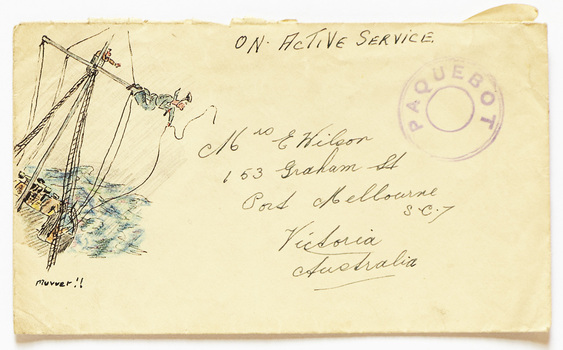 ON ACTIVE SERVICE.
PAQUEBOT
Mrs E Wilson
153 Graham St
Port Melbourne
S.C.7
Victoria
Australia
muvver!!